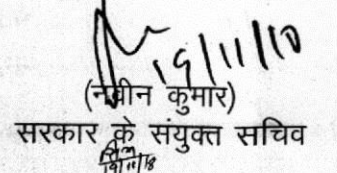 19/11/10
(नवीन कुमार)
सरकार के संयुक्त सचिव